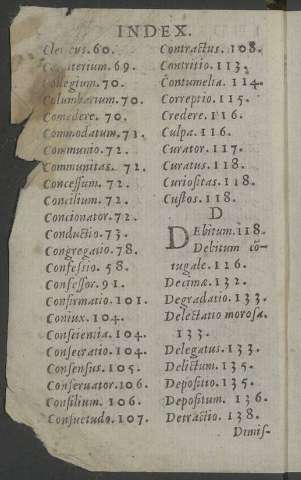 INDEX.
Clericus. 60.
Cœmeterium. 69.
Collegium. 70.
Columbarium. 70.
Comedere. 70.
Commodatum. 71.
Communio. 72.
Communitas. 72.
Concessum. 72.
Concilium. 72.
Concionator. 72.
Conductio. 73.
Congregatio. 78.
Confessio. 58.
Confessor. 91.
Confirmatio. 101.
Coniux. 104.
Conscientia. 104.
Consecratio. 104.
Consensus. 105.
Conservator. 106.
Consilium. 106.
Consuetudo. 107.
Contractus. 108.
Contritio. 113.
Contumelia. 114.
Correptio. 115.
Credere. 116.
Culpa. 116.
Curator. 117.
Curatus. 118.
Curiositas. 118.
Custos. 118.
D
DEbitum. 118.
Debitum cõ-
iugale. 126.
Decimæ. 132.
Degradatio. 133.
Delectatio morosa.
133.
Delegatus. 133.
Delictum. 135.
Depositio. 135.
Depositum. 136.
Detractio. 138.
Dimis-